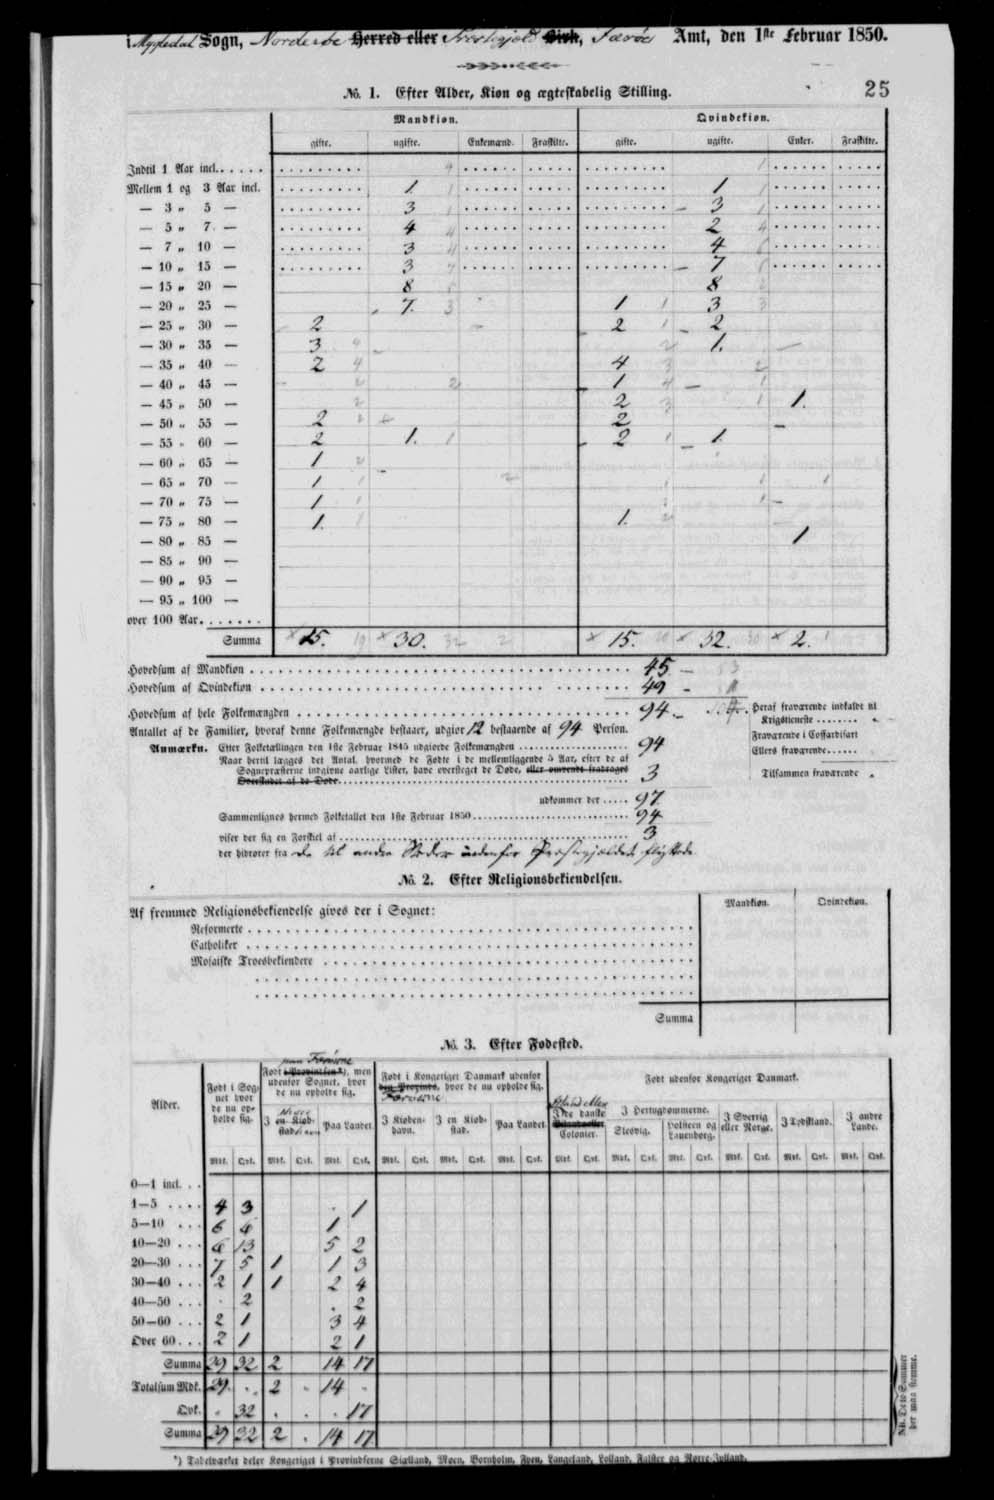 i Mygledal Sogn, Norderøe Herred eller Præstegjeld Birk, Færøe Amt, den 1ste Februar 1850.
25
No. 1. Efter Alder, Kiøn og ægteskabelig Stilling.
Mandkiøn. Qvindekiøn.
gifte. ugifte. Enkemænd. Fraskilte. gifte. ugifte. Enker. Fraskilte.
Indtil 1 Aar incl. 4 1
Mellem 1 og 3 Aar incl. 1. 1 1 1
— 3 „ 5 — 3 1 3 1
— 5 „ 7 — 4 4 2 4
— 7 „ 10 — 3 4 4 6
— 10 „ 15 — 3 7
— 15 „ 20 — 8 8
— 20 „ 25 — 7. 3 1 1 3 3
— 25 „ 30 — 2 2 1 2
— 30 „ 35 — 3 4 2 1.
— 35 „ 40 — 2 4 4 3 2
— 40 „ 45 — 2 2 1 4 1
— 45 „ 50 — 2 2 3 1 1.
— 50 „ 55 — 2 2 2
— 55 „ 60 — 2 1. 1 2 1 1.
— 60 „ 65 — 1 2
— 65 „ 70 — 1 1 2 1 1 1
— 70 „ 75 — 1 1 1
— 75 „ 80 — 1. 1 1. 2
— 80 „ 85 — 1
— 85 „ 90 —
— 90 „ 95 —
— 95 „ 100 —
over 100 Aar
Summa 15. 19 30. 32 2 15. 20 32. 30 2. 1
Hovedsum af Mandkiøn 45 53
Hovedsum af Qvindekiøn 49
Hovedsum af hele Folkemængden 94
Heraf fraværende indkaldte til Krigstieneste
Antallet af de Familier, hvoraf denne Folkemængde bestaaer, udgiør 12 bestaaende af 94 Person.
Fraværende i Coffardifart
Anmærkn. Efter Folketællingen den 1ste Februar 1845 udgiorde Folkemængden 94
Ellers fraværende
Naar hertil lægges det Antal, hvormed de Fødte i de mellemliggende 5 Aar, efter de af
Sognepræsterne indgivne aarlige Lister, have oversteget de Døde, eller omvendt fradrages
Overskudet af de Døde 3
Tilsammen fraværende
udkommer der 97
Sammenlignes hermed Folketallet den 1ste Februar 1850 94
viser der sig en Forskiel af 3
der hidrører fra de til andre Steder udenfor Præstegjældet flyttede
No. 2. Efter Religionsbekiendelsen.
Mandkiøn. Qvindekiøn.
Af fremmed Religionsbekiendelse gives der i Sognet:
Reformerte
Catholiker
Mosaiske Troesbekiendere
Summa
No. 3. Efter Fødested.
Alder.
Født i Sognet hvor de nu opholde sig.
paa Færøerne
Født i Provindsen*), men udenfor Sognet, hvor de nu opholde sig.
I en Kiøbstad. Paa Landet.
Født i Kongeriget Danmark udenfor den Provinds, hvor de nu opholde sig.
Færøerne
I Kiøbenhavn. I en Kiøbstad. Paa Landet.
Født udenfor Kongeriget Danmark.
Colonier.
I Hertugdømmerne.
Slesvig. Holsteen og Lauenborg.
I Sverrig eller Norge. I Tydskland. I andre Lande.
Mdk. Qvk. Mdk. Qvk. Mdk. Qvk. Mdk. Qvk. Mdk. Qvk. Mdk. Qvk. Mdk. Qvk. Mdk. Qvk. Mdk. Qvk. Mdk. Qvk. Mdk. Qvk. Mdk. Qvk.
0—1 incl.
1—5 4 3 1
5—10 6 6 1
10—20 6 13 5 2
20—30 7 5 1 1 3
30—40 2 1 1 2 4
40—50 2 2
50—60 2 1 3 4
Over 60 2 1 2 1
Summa 29 32 2 14 17
Totalsum Mdk. 29. 2 14
Qvk. 32 17
Summa 29 32 2 14 17
NB. Disse Summer her maa stemme.
*) Tabelværket deler Kongeriget i Provindserne Siælland, Møen, Bornholm, Fyen, Langeland, Lolland, Falster og Nørre-Jylland.